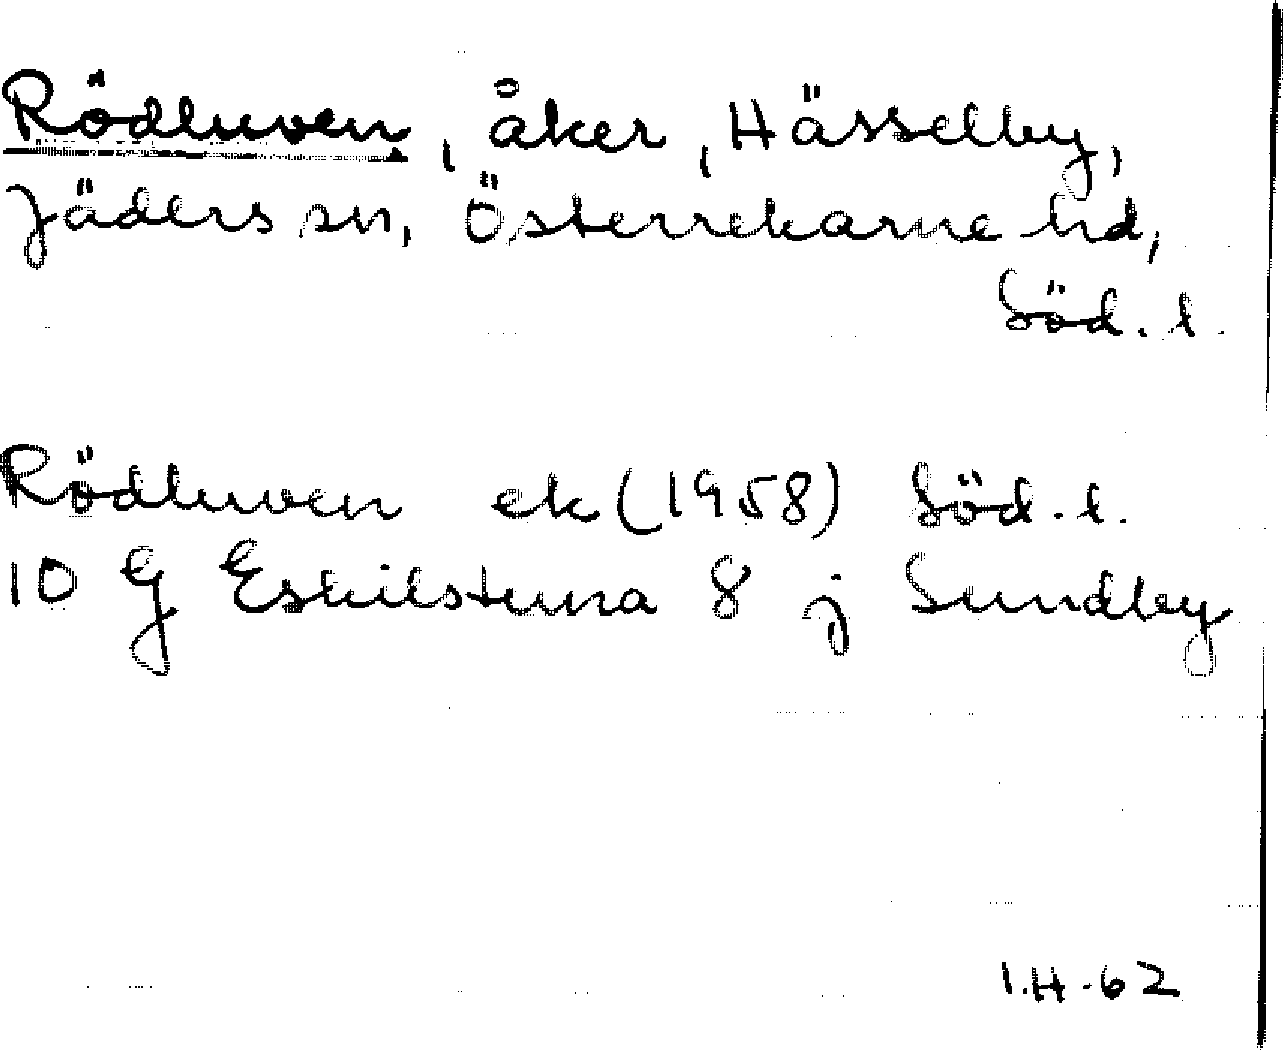 Rödluven, åker, Hässelby,
Jäders sn, Österrekarne hd,
Söd. l.
Rödluven ek (1958) Söd. l.
10 G Eskilstuna 8 j Sundby
I.H. 62